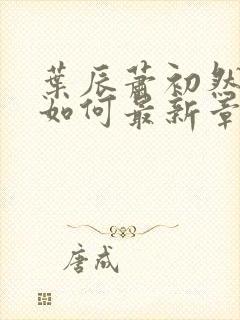 葉辰蕭初然
如何最新章
唐成